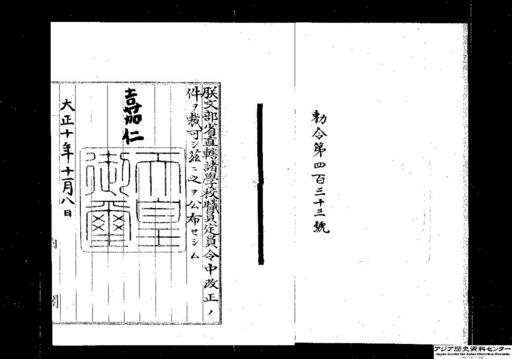 勅令第四百三十三號
朕文部省直轄諸學校職員定員令中改正ノ
件ヲ裁可シ茲ニ之ヲ公布セシム
嘉仁
天皇御璽
大正十年十一月八日
内閣
アジア歴史資料センター
Japan Center for Asian Historical Records